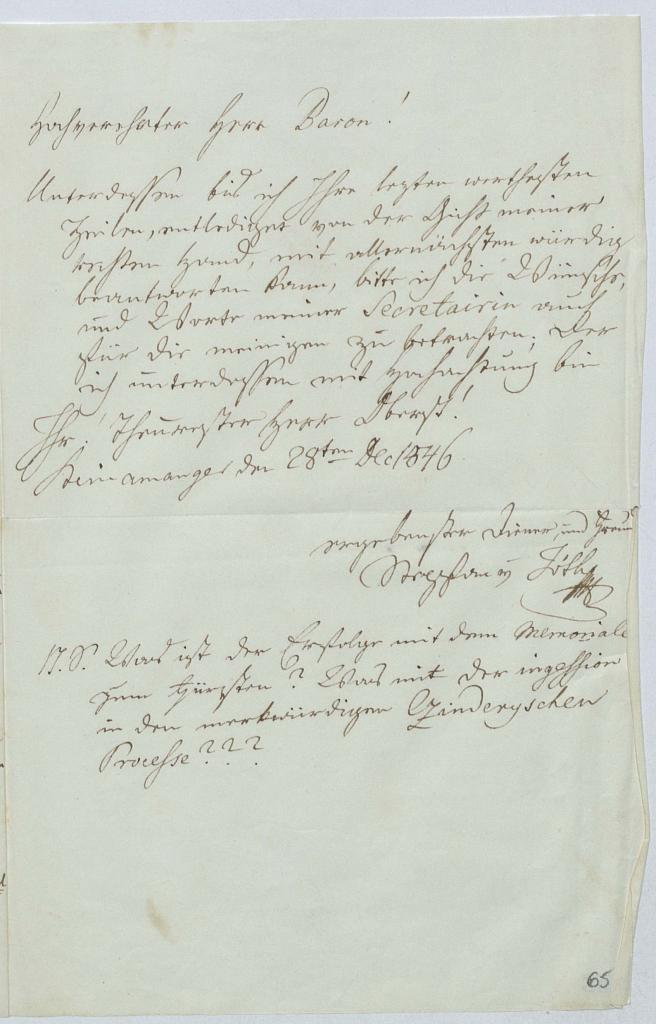 Hochverehrter Herr Baron!
Unterdessen bis ich Ihre letzten werthesten
Zeilen, entlediget von der Gicht meiner
rechten Hand, mit allernächsten würdig
beantworten kann, bitte ich die Wünsche,
und Worte meiner Secretairin auch
für die meinigen zu betrachten; Der
ich unterdessen mit Hochachtung bin
Ihr, Theurester Herr Oberst!
Steinamanger den 28ten Dec 1846
ergebenster Diener und Freund
Stephan v Tóth
N.S. Was ist der Erfolg mit dem Memoriale
zum Fürsten? Was mit der ingession
in den merkwürdigen Czinderyschen
Processe???
65